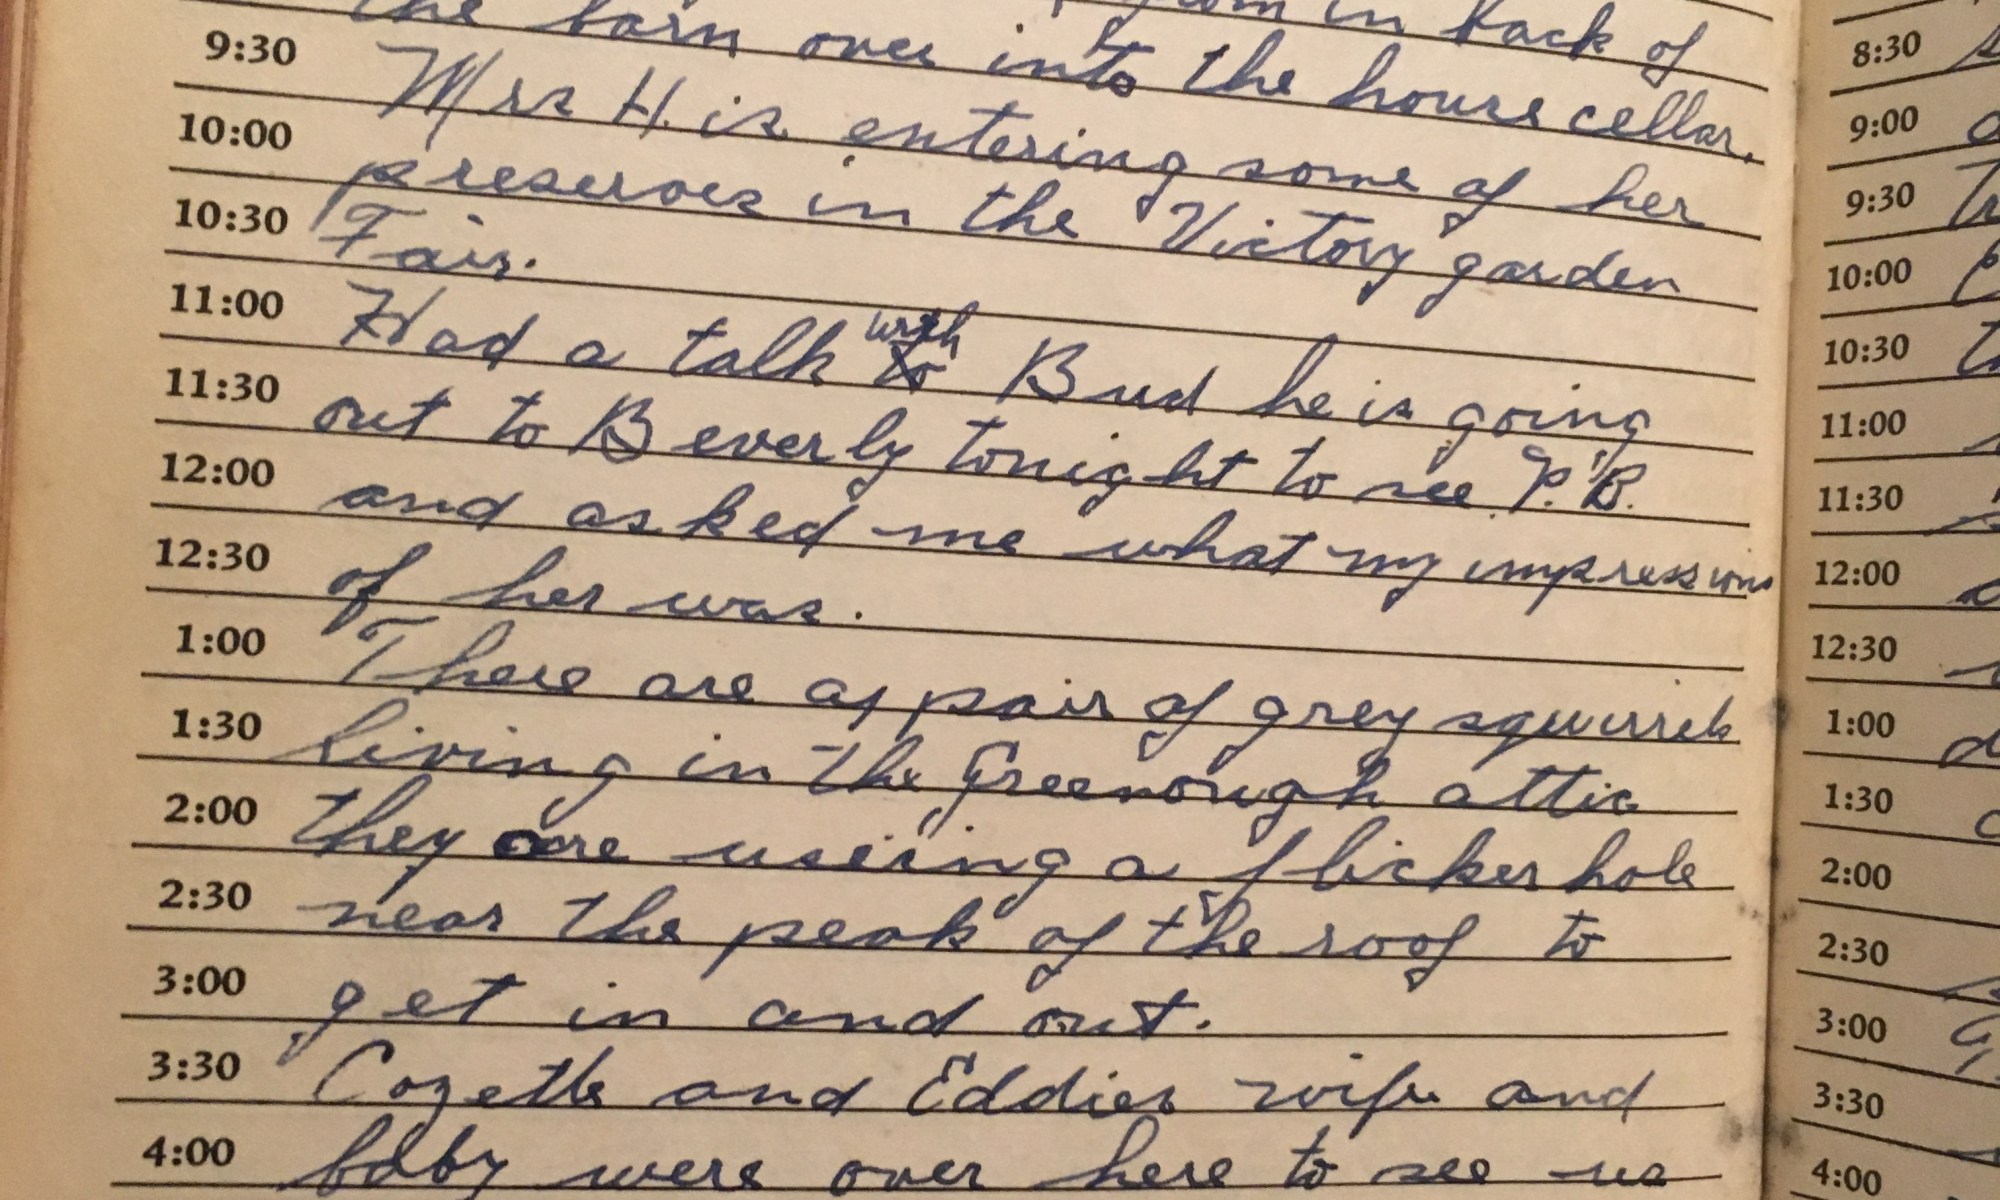 in back of
the barn over into the house cellar.
9:30
Mrs H. is entering some of her
10:00
preserves in the Victory garden
10:30
Fair.
11:00
Had a talk with to Bud he is going
11:30
out to Beverly tonight to see P.B.
12:00
and asked me what my impressions
12:30
of her was.
1:00
There are a pair of grey squirrels
1:30
living in the Greenough attic
2:00
they are useing a flicker hole
2:30
near the peak of the roof to
3:00
get in and out.
3:30
Cozette and Eddies wife and
4:00
baby were over here to see us
8:30
9:00
9:30
10:00
10:30
11:00
11:30
12:00
12:30
1:00
1:30
2:00
2:30
3:00
3:30
4:00